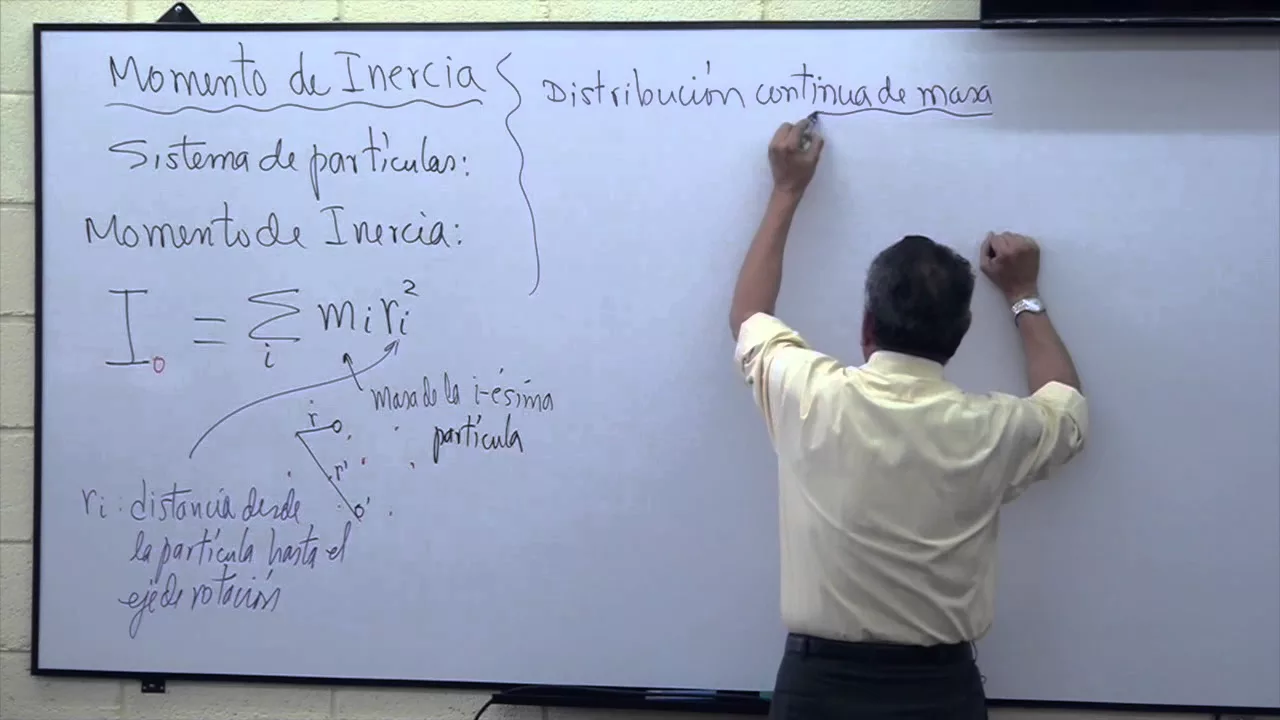 Momento de Inercia
Sistema de partículas:
Momento de Inercia:
I₀ = Σᵢ mᵢrᵢ²
masa de la i-ésima
partícula
r O
r' O'
rᵢ: distancia desde
la partícula hasta el
eje de rotación
Distribución continua de masa